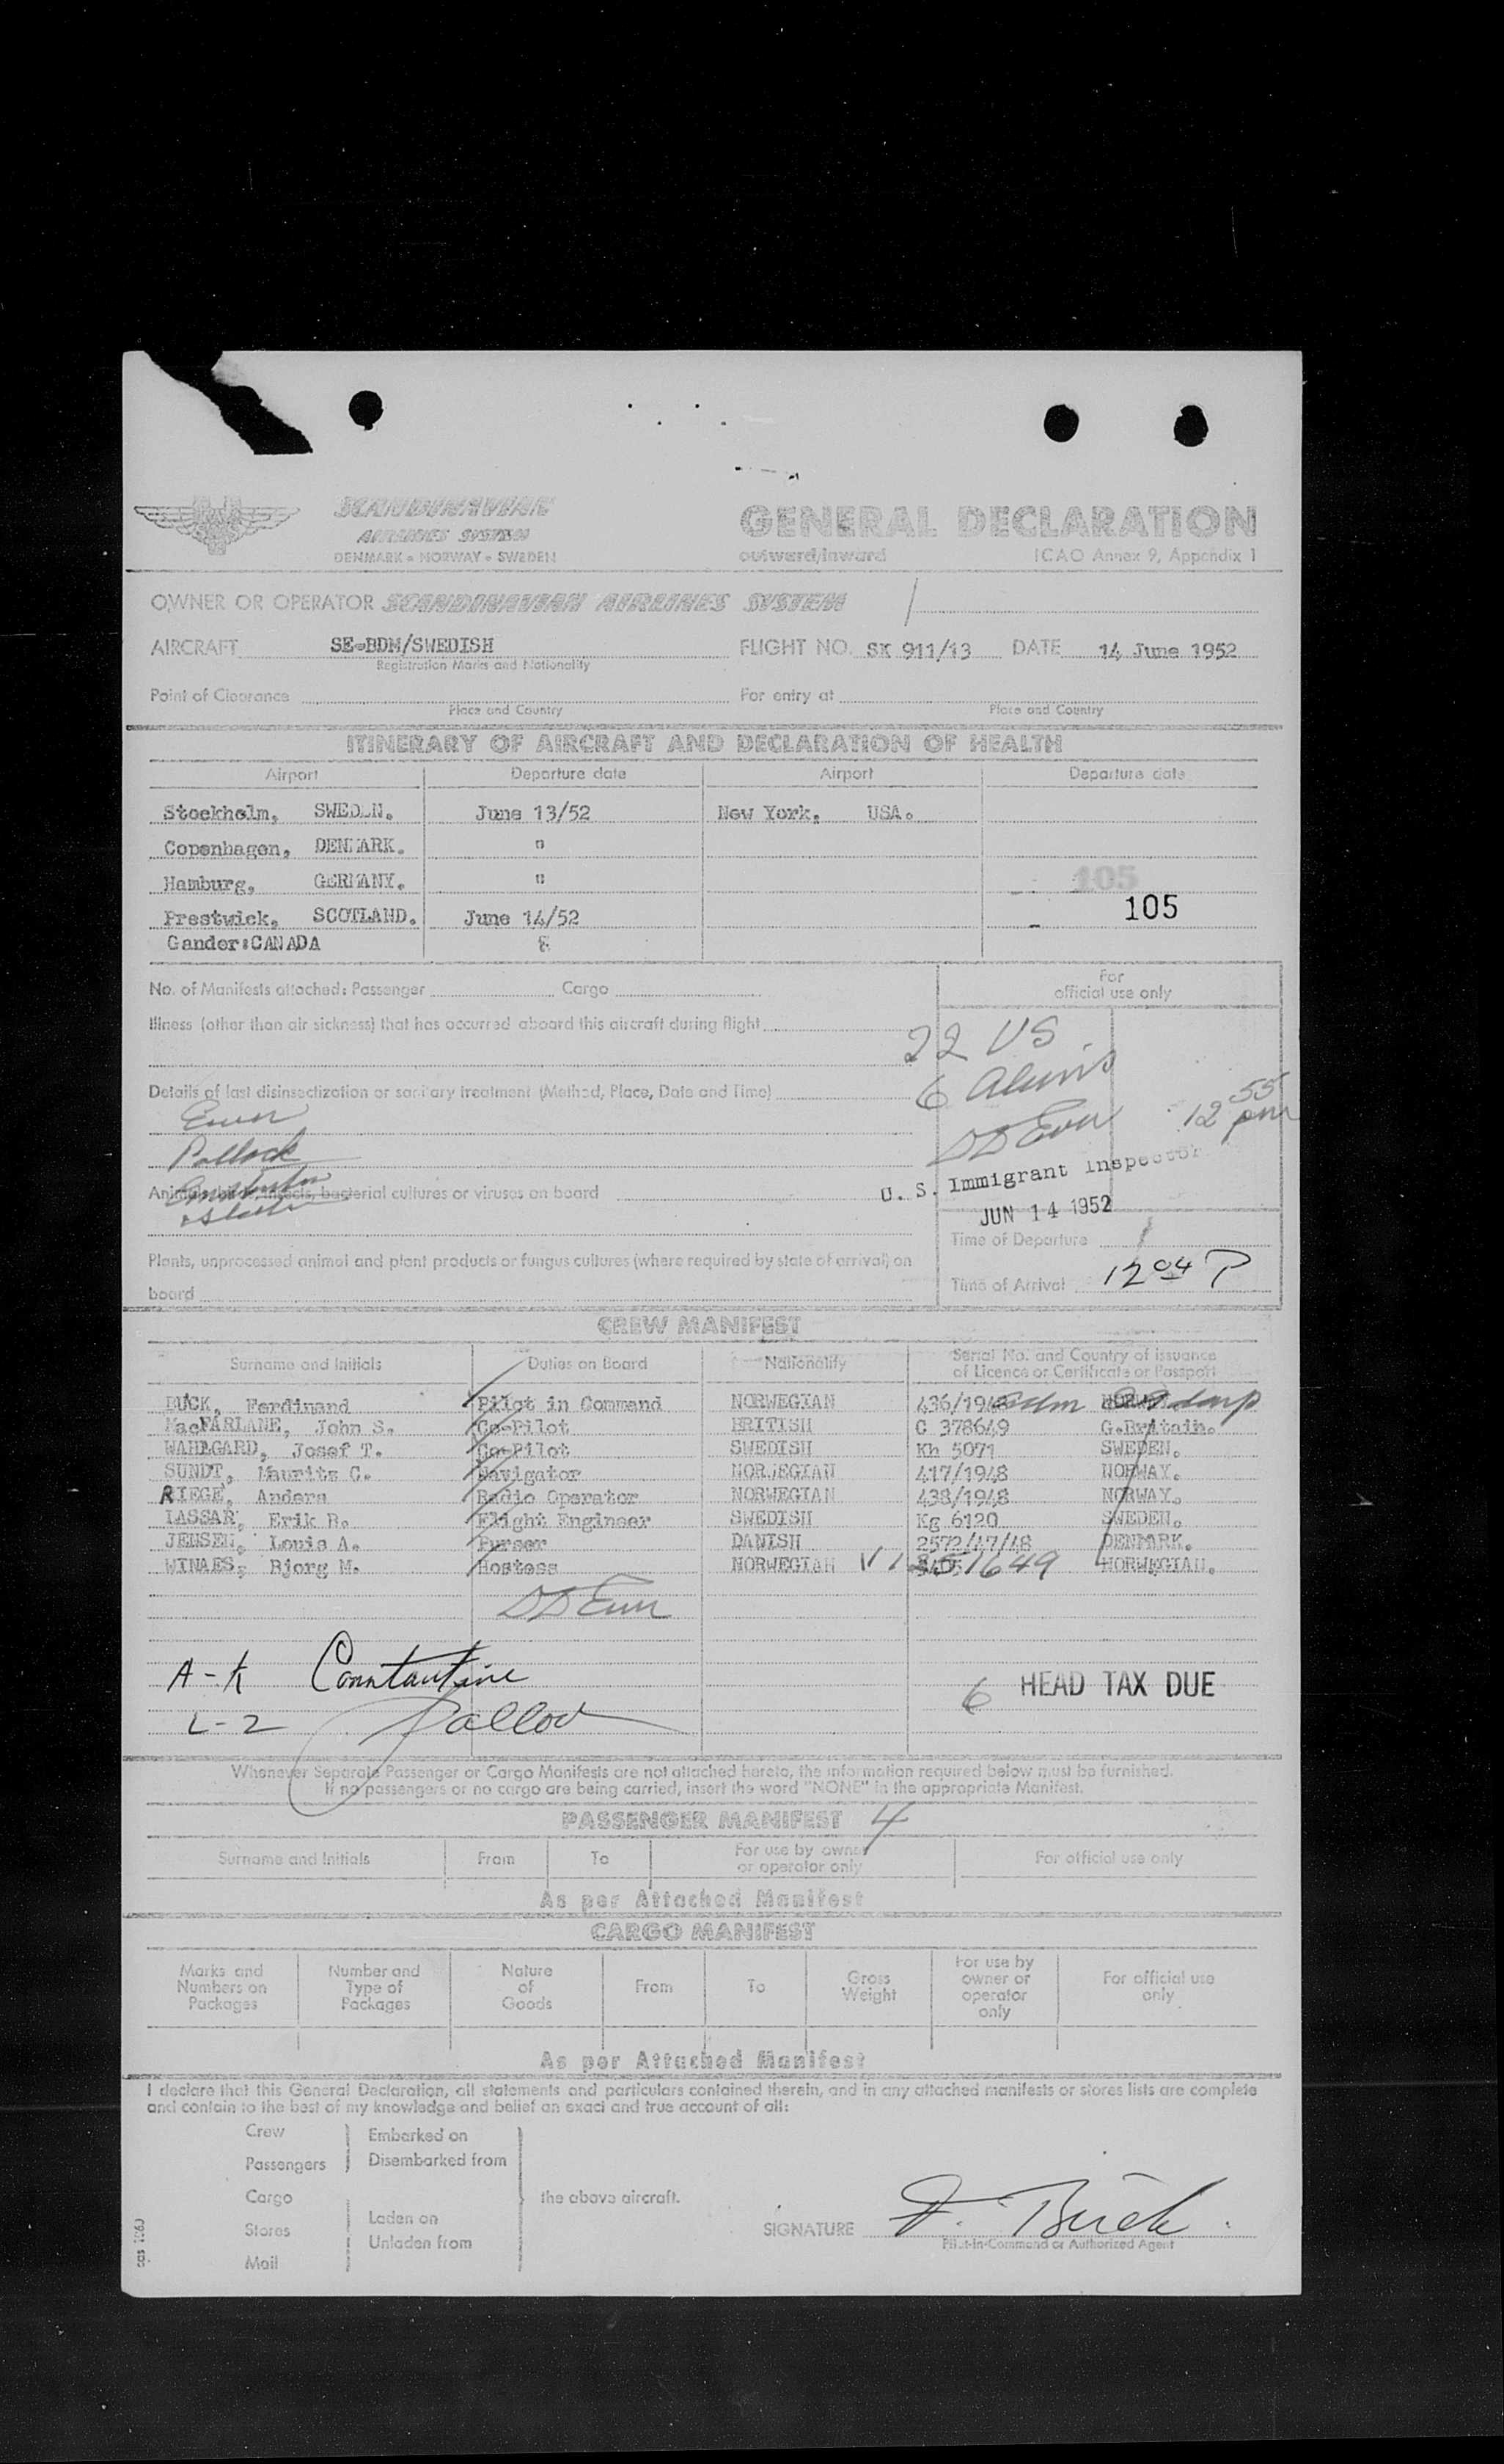 SCANDINAVIAN
AIRLINES SYSTEM
DENMARK - NORWAY - SWEDEN
GENERAL DECLARATION
outward/inward ICAO Annex 9, Appendix 1
OWNER OR OPERATOR SCANDINAVIAN AIRLINES SYSTEM
AIRCRAFT SE-BDM/SWEDISH FLIGHT NO. SK 911/13 DATE 14 June 1952
Registration Marks and Nationality
Point of Clearance For entry at
Place and Country Place and Country
ITINERARY OF AIRCRAFT AND DECLARATION OF HEALTH
Airport Departure date Airport Departure date
Stockholm, SWEDEN. June 13/52 New York, USA.
Copenhagen, DENMARK. "
Hamburg, GERMANY. " 105
Prestwick, SCOTLAND. June 14/52 105
Gander:CANADA
No. of Manifests attached: Passenger Cargo
For
official use only
Illness (other than air sickness) that has occurred aboard this aircraft during flight
22 US
6 aliens
Details of last disinsectization or sanitary treatment (Method, Place, Date and Time)
Ewer
DD Ewer 12 55 pm
Pollock
U. S. Immigrant Inspector
Animals, birds, insects, bacterial cultures or viruses on board
JUN 14 1952
Time of Departure
Plants, unprocessed animal and plant products or fungus cultures (where required by state of arrival) on
board
Time of Arrival 12 04 P
CREW MANIFEST
Surname and Initials Duties on Board Nationality Serial No. and Country of issuance
of Licence or Certificate or Passport
BUCK, Ferdinand Pilot in Command NORWEGIAN 436/1948 NORWAY
MacFARLANE, John S. Co-Pilot BRITISH C 378649 G.Britain.
WAHLGARD, Josef T. Co-Pilot SWEDISH Kh 5071 SWEDEN.
SUNDT, Maurits C. Navigator NORWEGIAN 417/1948 NORWAY.
RIEGE, Anders Radio Operator NORWEGIAN 438/1948 NORWAY.
LASSAR, Erik B. Flight Engineer SWEDISH Kg 6120 SWEDEN.
JENSEN, Louis A. Purser DANISH 2572/47/48 DENMARK.
WINAES, Bjorg M. Hostess NORWEGIAN V1251649 NORWEGIAN.
DD Ewer
A-K Constantine
6 HEAD TAX DUE
L-Z Pollock
Whenever Separate Passenger or Cargo Manifests are not attached hereto, the information required below must be furnished.
If no passengers or no cargo are being carried, insert the word "NONE" in the appropriate Manifest.
PASSENGER MANIFEST 4
Surname and Initials From To For use by owner
or operator only For official use only
As per Attached Manifest
CARGO MANIFEST
Marks and
Numbers on
Packages
Number and
Type of
Packages
Nature
of
Goods
From
To
Gross
Weight
For use by
owner or
operator
only
For official use
only
As per Attached Manifest
I declare that this General Declaration, all statements and particulars contained therein, and in any attached manifests or stores lists are complete
and contain to the best of my knowledge and belief an exact and true account of all:
Crew Embarked on
Passengers Disembarked from
Cargo the above aircraft.
Laden on
Stores
Unladen from
Mail
SIGNATURE F. Buck
Pilot-in-Command or Authorized Agent